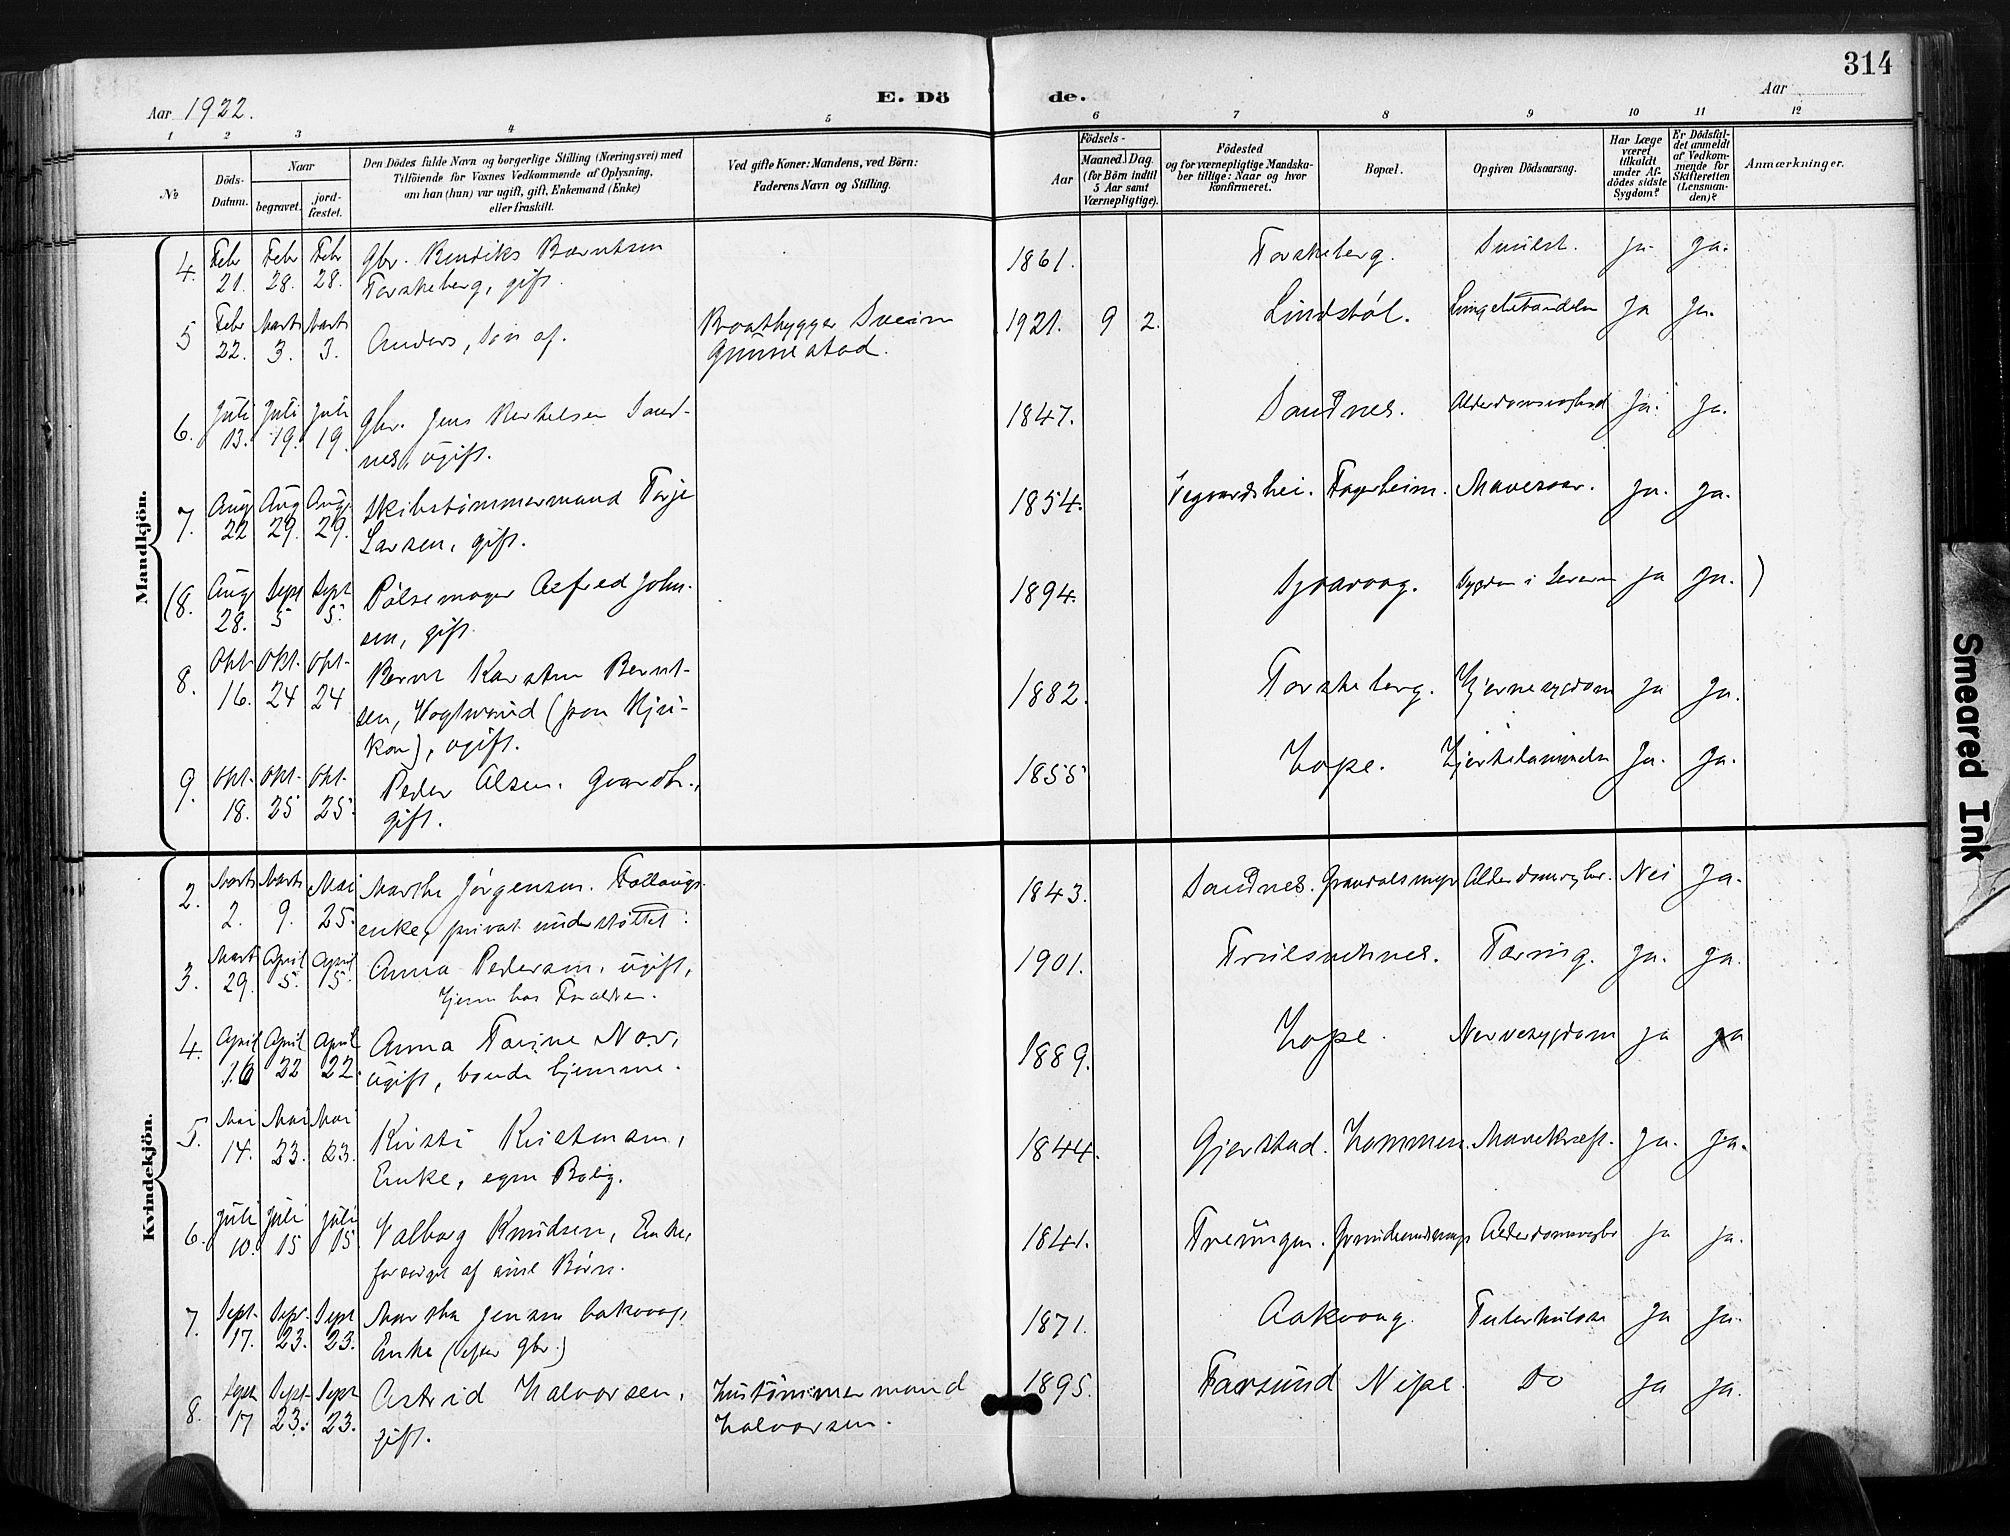 314
Aar 1922.
E. Dö
de.
Aar
1 2 3 4 5 6 7 8 9 10 11 12
No
Döds-Datum.
Naar
begravet.
jord-fæstet.
Den Dödes fulde Navn og borgerlige Stilling (Næringsvei) med
Tilföiende for Voxnes Vedkommende af Oplysning,
om han (hun) var ugift, gift, Enkemand (Enke)
eller fraskilt.
Ved gifte Koner: Mandens, ved Börn:
Faderens Navn og Stilling.
Födsels-
Aar
Maaned. Dag.
(for Börn indtil
5 Aar samt
Værnepligtige).
Födested
og for værnepligtige Mandska-
ber tillige: Naar og hvor
konfirmeret.
Bopæl.
Opgiven Dödsaarsag.
Har Læge
været
tilkaldt
under Af-
dödes sidste
Sygdom?
Er Dödsfal-
det anmeldt
af Vedkom-
mende for
Skifteretten
(Lensman-
den)?
Anmærkninger.
Mandkjön.
4. Febr 21. Febr 28. Febr 28. Gbr. Bendiks Berntsen
Torskeberg, gift. 1861. Torskeberg. ja. ja.
5 Febr 22. Marts 3. Marts 3. Anders, søn af. Baatbygger Svein
Gunnestad. 1921. 9 2. Lindstøl. Ja ja.
6. Juli 13. Juli 19. Juli 19. Gbr. Jens Bertelsen Sand-
nes, ugift. 1847. Sandnes. Ja. ja.
7. Aug 22 Aug 29. Aug 29. Skibstømmermand Terje
Larsen, gift. 1854. Vegaardshei. Fagerheim. Mavesaar. ja. ja.
(8. Aug 28. Sept 5 Sept 5. Pølsemager Alfred John-
sen, gift. 1894. Sygdom i Leveren ja ja. )
8. Okt 16. Okt. 24 Okt. 24 Bernt Karsten Bernt-
sen, Vogtmand (fra Rju-
kan), ugift. 1882. Torskeberg. Hjernesygdom ja ja.
9. Okt. 18. Okt. 25 Okt. 25. Peder Olsen. Gaardbr.,
gift. 1855 Hope. Hjertelammelse Ja. ja.
Kvindekjön.
2. Marts 2. Marts 9. Mai 25. Marthe Jørgensen.
enke, privat understøttet. 1843. Sandnes. Nei Ja.
3. Marts 29. April 5. April 15. Anna Pedersen, ugift,
hjem hos Forældre. 1901. Tæring. ja. ja.
4. April 16 April 22 April 22. Anna Torine Nov.
ugift, boende hjemme. 1889. Hope. Nervesygdom ja ja
5. Mai 14. Mai 23. Mai 23. Kirsti Kristensen,
Enke, egen Bolig. 1844. Gjerstad. Hommen. Mavekræft. ja. ja.
6. Juli 10. Juli 15 Juli 15. Valborg Knudsen, Enke,
forsørget af sine Børn. 1841. Treungen. ja ja.
7. Sept. 17. Sept. 23. Sept 23. Martha Jensen Aakvaag,
Enke (efter gbr.) 1871. Aakvaag. Tuberkulose Ja Ja.
8. Sept 17 Sept. 23. Sept 23. Astrid Halvorsen,
gift. Hustømmermand
Halvorsen. 1895. Farsund Nipe. Do ja ja.
Smeared Ink